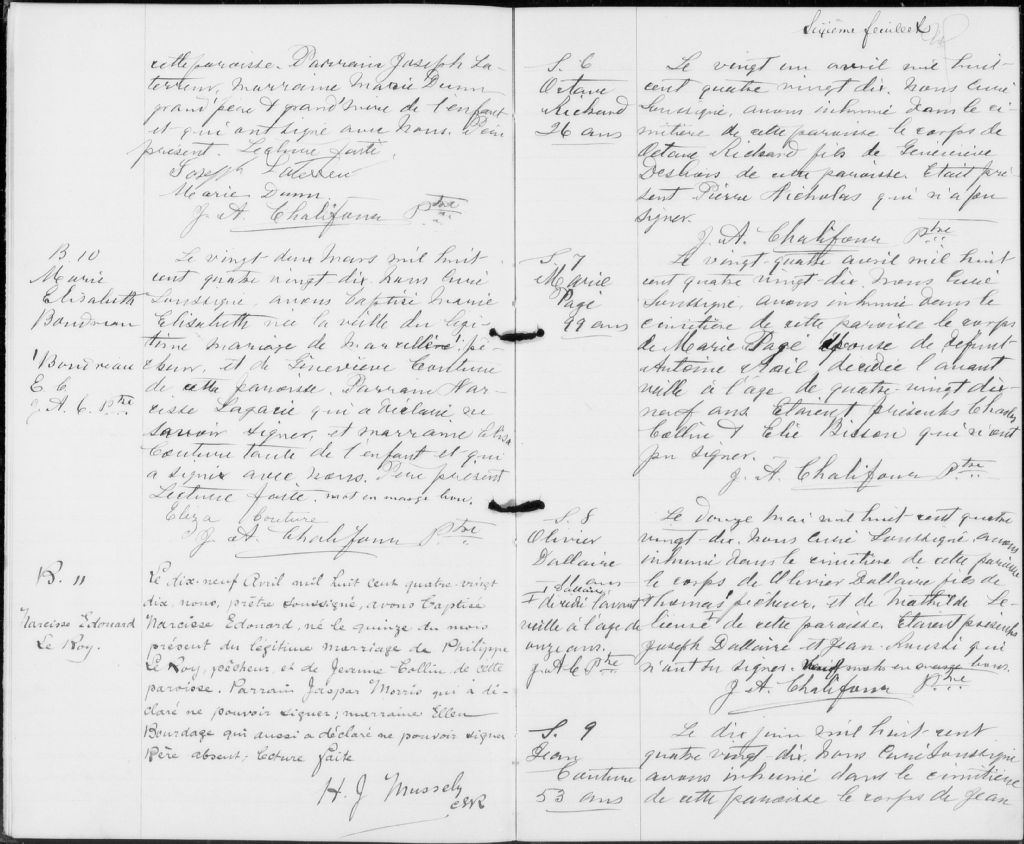 cette paroisse. Parrain Joseph La-
terreur, Marraine Marie Dunn
grand père & grand'mère de l'enfant
et qui ont signé avec nous. Père
présent. Lecture faite.
Joseph Laterreur
Marie Dunn
J. A. Chalifour Ptre
B. 10
Marie
Elisabeth
Boudreau
1 Boudreau
E. C.
J. A. C. Ptre
Le vingt deux Mars mil huit
cent quatre vingt dix. Nous Curé
Soussigné, avons baptisé Marie
Elisabeth née la veille du légi-
time mariage de Marcellin 1 pê-
cheur, et de Geneviève Couture
de cette paroisse. Parrain Nar-
cisse Lagacé qui a déclaré ne
savoir signer, et marraine Eliza
Couture tante de l'enfant et qui
a signé avec nous. Père présent
Lecture faite. mot en marge bon.
Eliza Couture
J. A. Chalifour Ptre
B. 11
Narcisse Edouard
Le Roy.
Le dix-neuf Avril mil huit cent quatre-vingt
dix, nous, prêtre soussigné, avons baptisé
Narcisse Edouard, né le quinze du mois
présent du légitime marriage de Philippe
Le Roy, pêcheur, et de Jeanne Collin, de cette
paroisse. Parrain Jaspar Morris qui à dé-
claré ne pouvoir signer; marraine Ellen
Bourdage qui aussi a déclaré ne pouvoir signer
Père absent; lecture faite
H. J Mussely
CSSR
Sixième feuillet
S. 6
Octave
Richard
26 ans
Le vingt un avril mil huit-
cent quatre vingt dix. Nous Curé
Soussigné, avons inhumé dans le ci-
mitière de cette paroisse le corps de
Octave Richard fils de Geneviève
Deslions de cette paroisse. Etait pré-
sent Pierre Nicholas qui n'a pu
signer.
J. A. Chalifour Ptre
S. 7
Marie
Pagé
99 ans
Le vingt quatre avril mil huit
cent quatre vingt-dix. Nous Curé
Soussigné, avons inhumé dans le
cimitière de cette paroisse le corps
de Marie Pagé épouse de défunt
Antoine Mail décédée l'avant
veille à l'âge de quatre vingt dix-
neuf ans. Etaient présents Charles
Collin & Elie Bisson qui n'ont
pu signer.
J. A. Chalifour Ptre
S. 8
Olivier
Dallaire
ans
I Dallaire
I décédé l'avant
veille à l'âge de
onze ans.
J. A C Ptre
Le douze Mai mil huit cent quatre
vingt-dix. Nous Curé Soussigné, avons
inhumé dans le cimitière de cette paroisse
le corps de Olivier Dallaire fils de
Thomas pêcheur, et de Mathilde Le-
lièvre I de cette paroisse. Etaient présents
Joseph Dallaire et Jean qui
n'ont su signer. mots en marge bons.
J A. Chalifour Ptre
S. 9
Jean
Couture
53 ans
Le dix juin mil huit cent
quatre vingt dix. Nous Curé Soussigné
avons inhumé dans le cimitière
de cette paroisse le corps de Jean